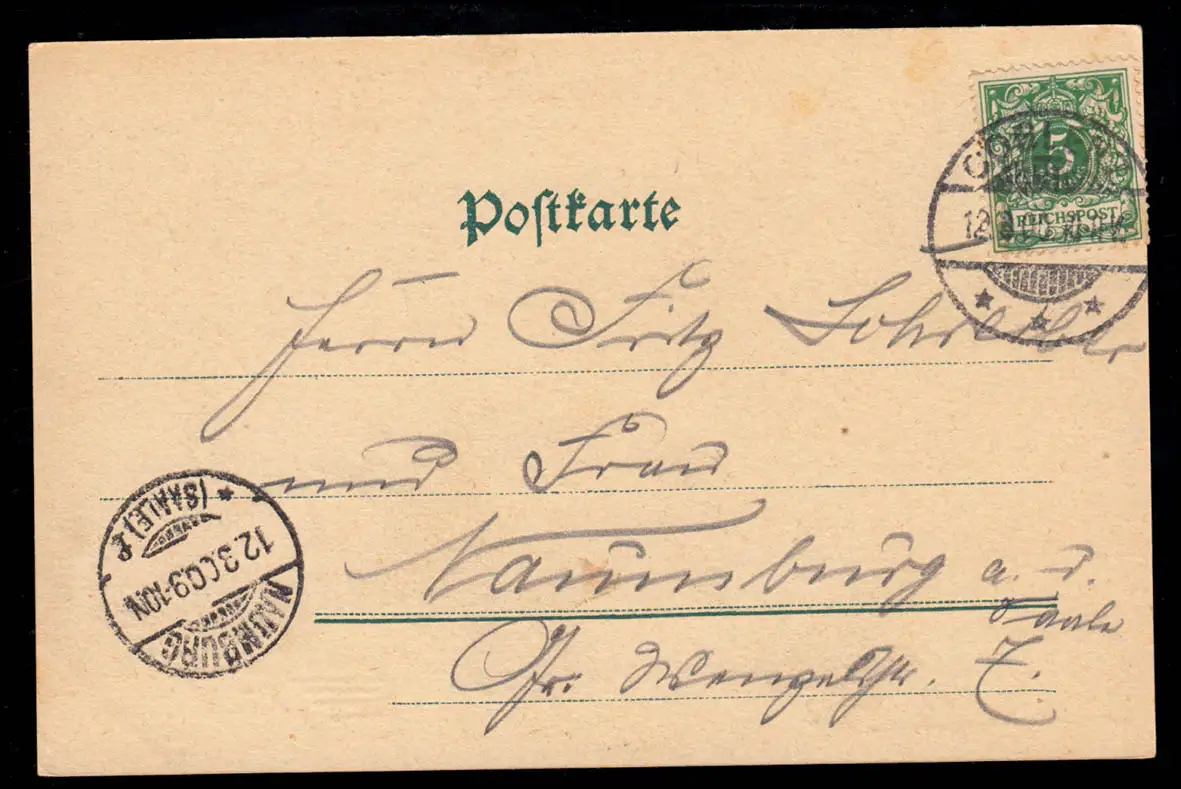 Postkarte
5
REICHSPOST
12.3.00
Herrn Fritz
und Frau
Naumburg a. d.
Saale
Gr. Wenzelstr. 7.
NAUMBURG
(SAALE)
12.3.00.9-10N